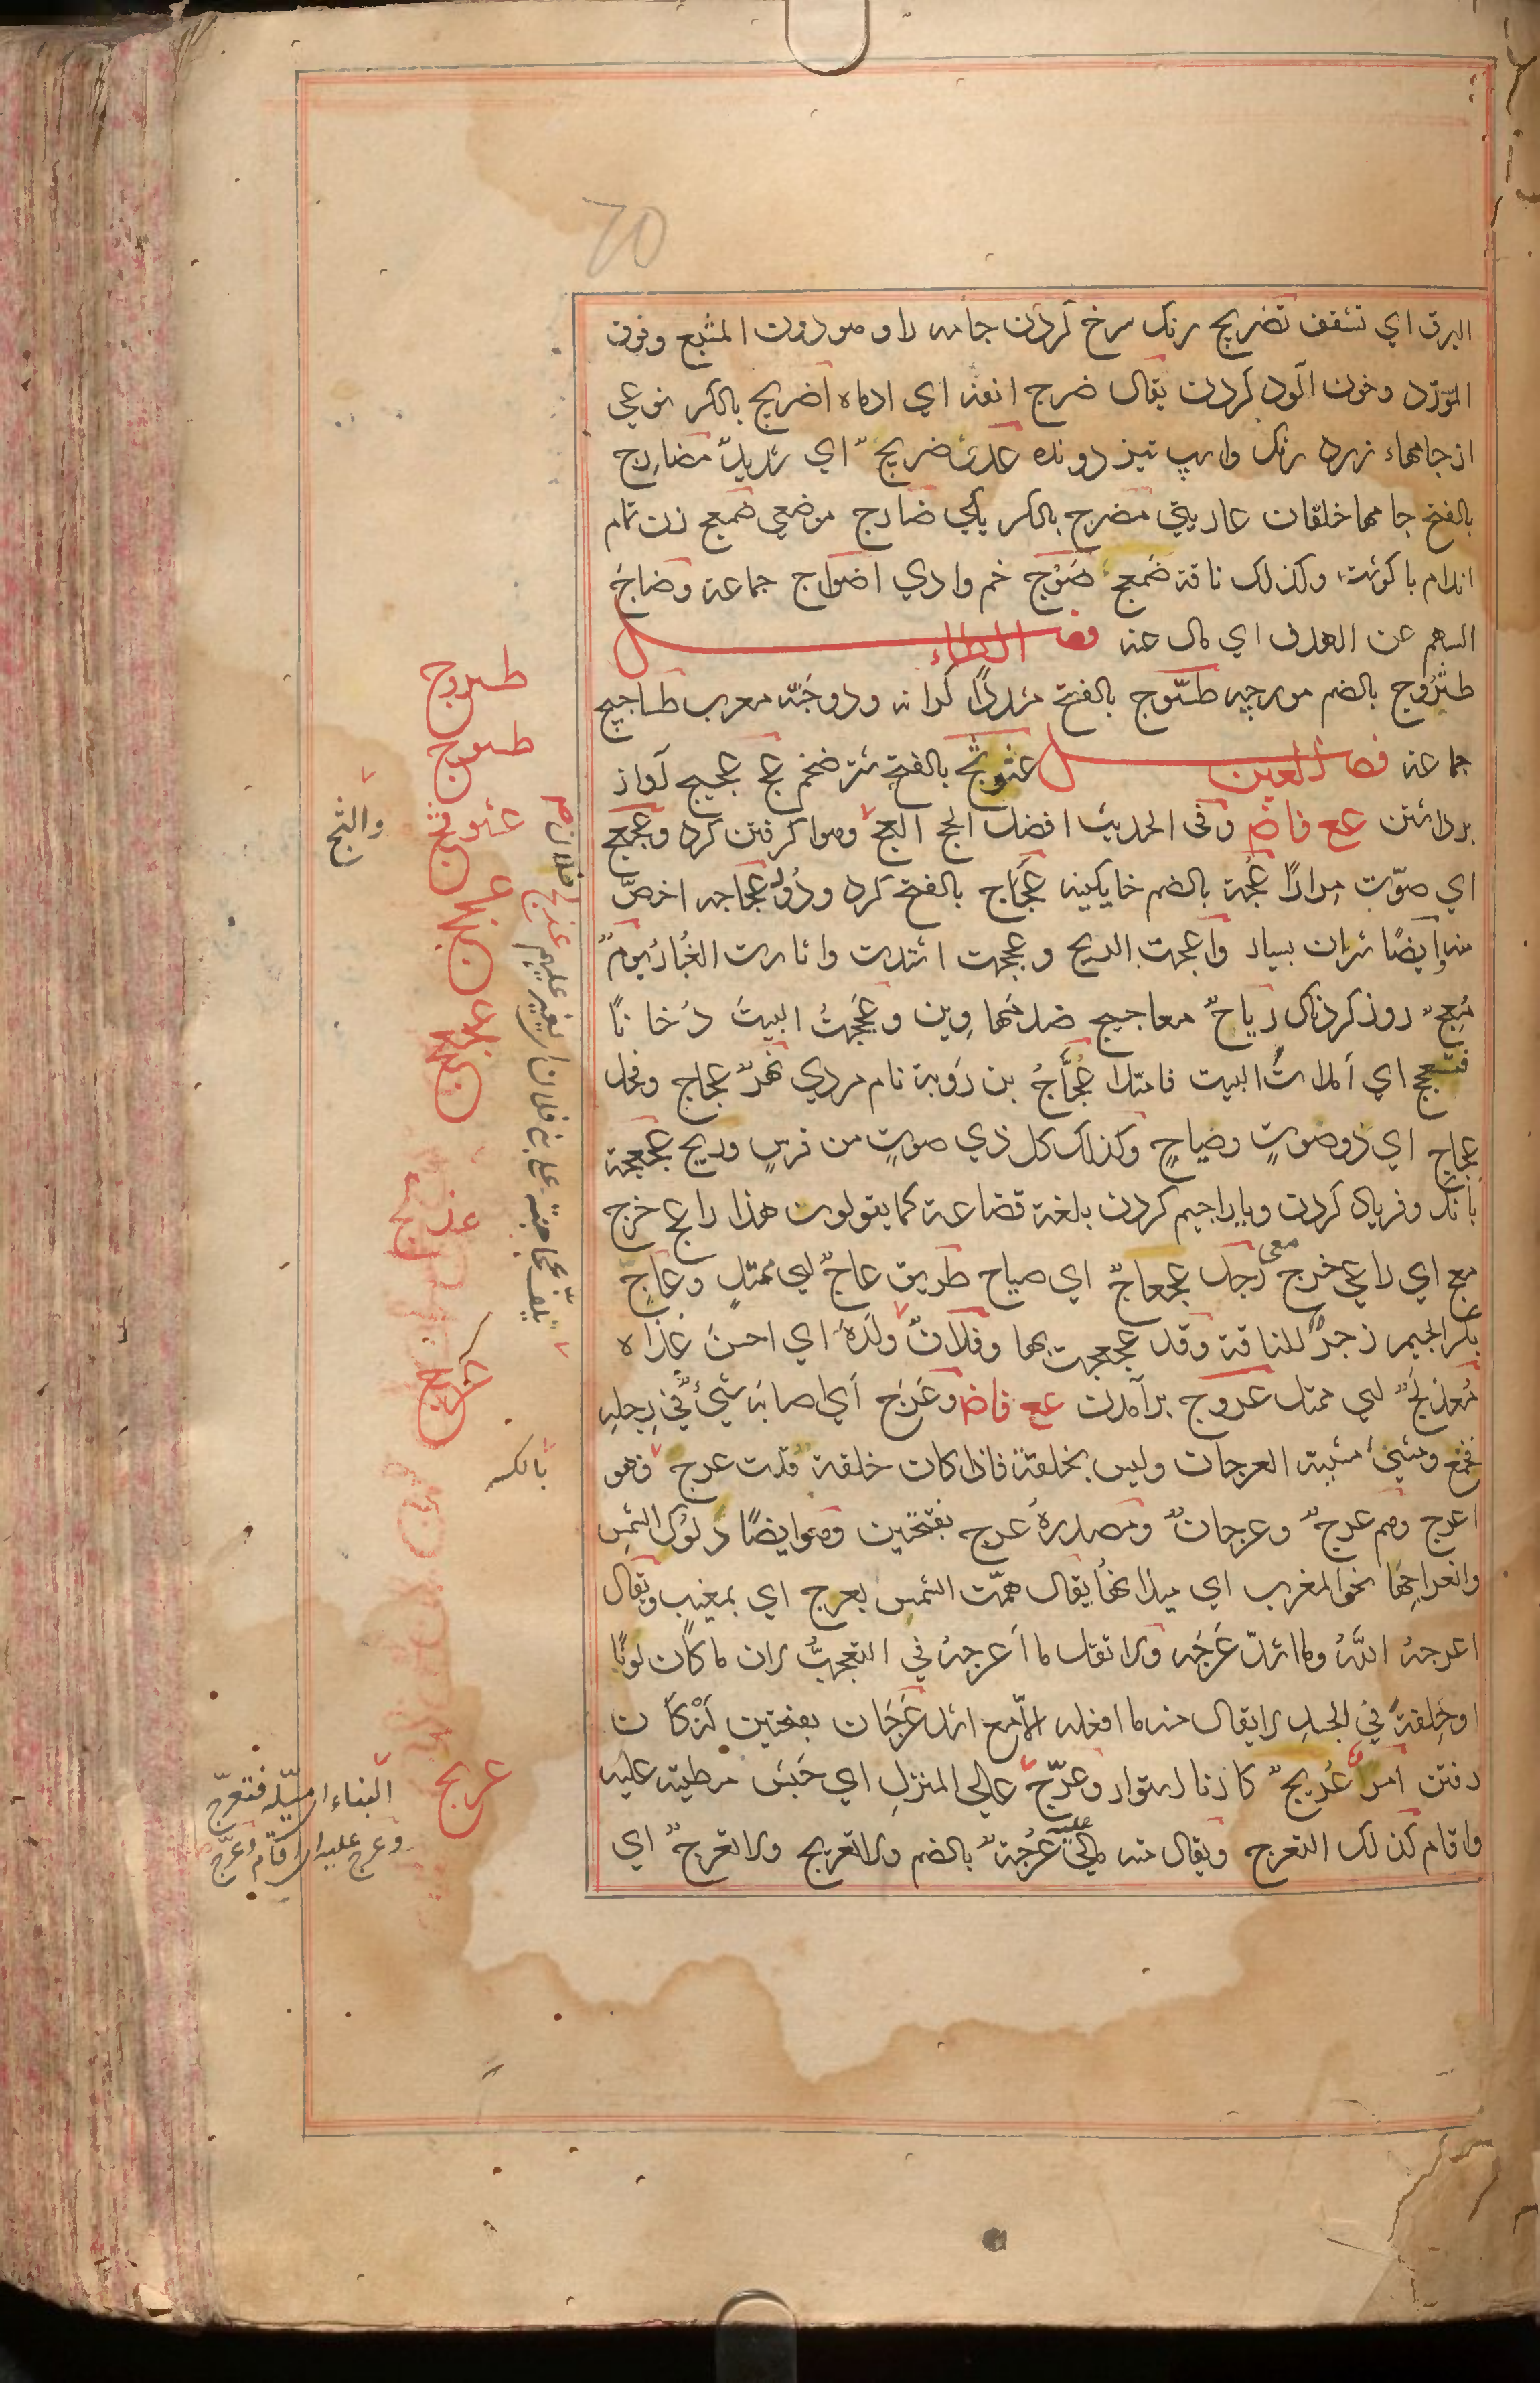 البرق اي تشقق تضريج رنك سرخ كردن جامه را و هو دون المشبع وفوق
المورّد وخون آلود كردن يقال ضرج انفه اي ادماه اضريج بالكسر نوعي
از جامهاء زرد رنك واسپ تيز دونده عدوٌ ضريجٌ اي شديدٌ مضارج
بالفتح جامها خلقان عاريتي مضرج بالكسر يكي ضارج موضعي ضمعج زن تمام
اندام با كوشت وكذلك ناقة ضمعج ضوج خم وادي اضواج جماعة وضاج
السهم عن الهدف اي مال عنه فصل الطاء
طثروج بالضم مورچه طسّوج بالفتح مشددًا كرانه ودو حبّه معرب طساجيج
جماعة فصل العين عثوثج بالفتح شتر ضخم عج عجيج آواز
برداشتن عع فاض وفى الحديث افضل الحج العج وهوا كرفتن كرد وعجعج
اي صوّت مرارًا عُجّة بالضم خايكينه عَجَاج بالفتح كرد ودود عجاجه اخصّ
منه وايضًا شتران بسيار واعجت الريح وعججت اشتدت واثارت الغُبار يومٌ
مُعِجٌّ روز كردناك رياحٌ معاجيج ضد مهاوين وعَجَّجتُ البيتَ دُخانًا
فتعجج اي املاتُ البيت فامتلا عَجَّاجُ بن رَوبة نام مردي نهرٌ عجاج وفحل
عجاج اي ذو صوتٍ وصياحٍ وكذلك كل ذي صوتٍ من قوسٍ وريح عجعجة
بانك وفرياد كردن ويا را جيم كردن بلغة قضاعة كما يقولون هذا راعج خرج
مع اي راعي خرج معي رجل عجعاجٌ اي صياح طريق عاجٌّ اي ممتلٍ وعاجِ
بكسر الجيم زجرٌ للناقة وقد عجعجت بها وفلانٌ ولَدَهُ اي احسن غذاه
مُعذلَجٌ اي ممتل عروج برآمدن عع فاض وعَرَج اي اصابه شيئ في رجله
فخمع ومشى مشية العرجان وليس بخلقة فاذا كان خلقة قلت عرج فهو
اعرج وهم عرجٌ وعرجانٌ ومصدرهُ عرج بفتحتين وهو ايضًا دلوك الشمس
وانعراجها نحو المغرب اي ميلانها يقال همّت الشمس بعرج اي بمغيب ويقال
اعرجهُ اللهُ وما اشدّ عَرَجَه ولا تقل ما اَعرجهُ في التعجب لان ما كان لونًا
او خِلقةً في الجسدِ لا يقال منه ما افعله الّا مع اشد عَرَجان بفتحتين لنك آن
رفتن امرٌ عَريجٌ كار نا استوار وعرّج على المنزل اي حَبَسَ مطيته عليه
واقام كذلك التعرج ويقال منه مالي عليه عُرجَةٌ بالضم ولا تعريج ولا تعرجٌ اي
طثروج
طسوج
والثج
عثوثج
عذلج
بالكسر
عريج
البناء اميّله فتعرّج